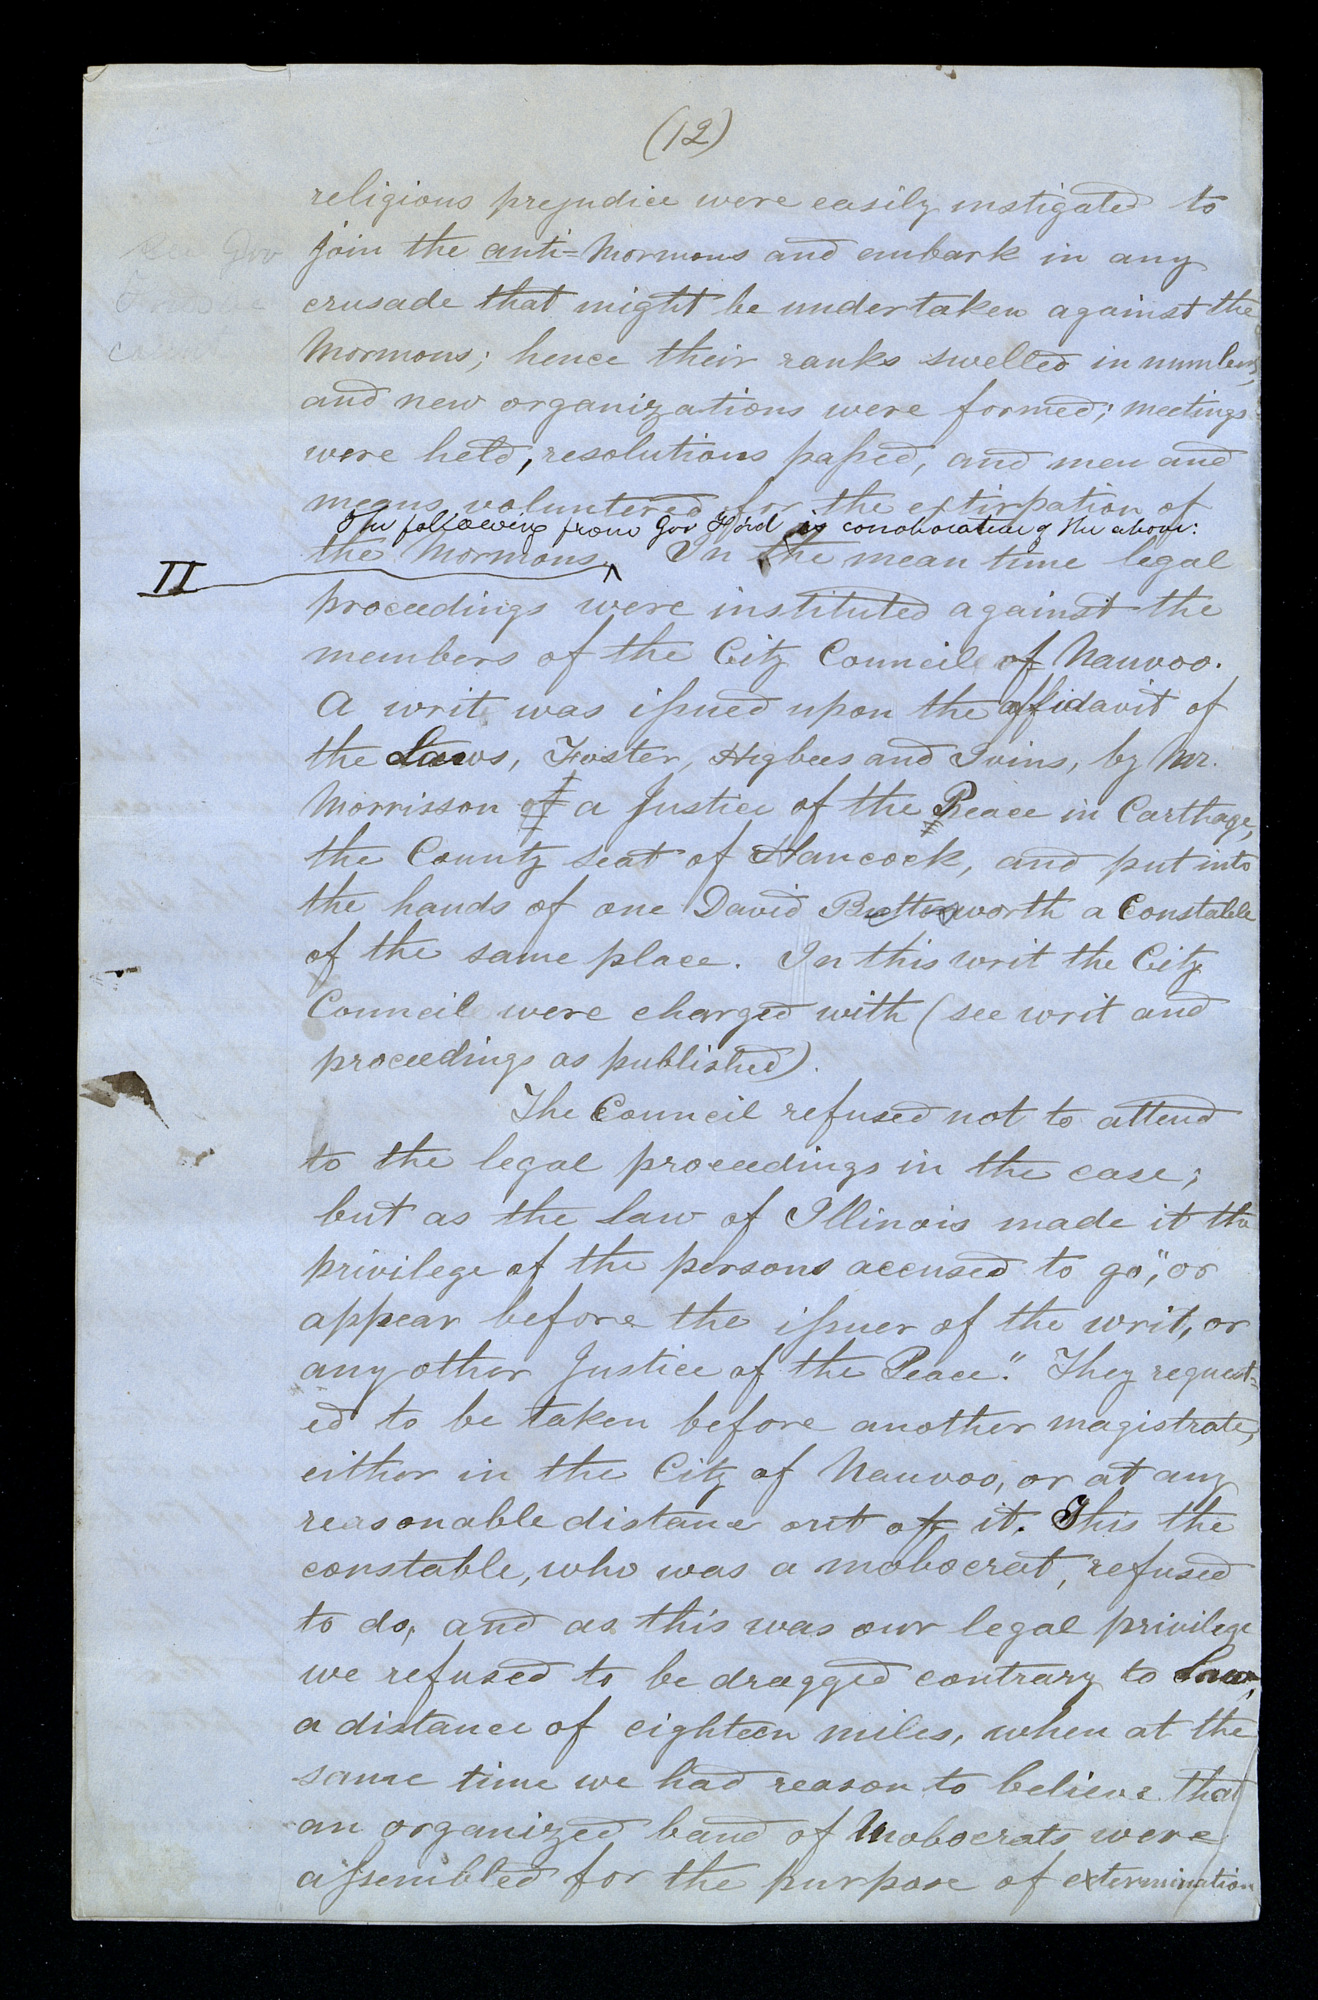 (12)
religious prejudice were easily instigated to
see Gov join the anti=Mormons and embark in any
crusade that might be undertaken against the
Mormons; hence their ranks swelled in numbers,
and new organizations were formed; meetings
were held, resolutions paſsed, and men and
means voluntered for the extirpation of
The following from Gov Ford is corroborative of the above:
II the Mormons. In the mean time legal
proceedings were instituted against the
members of the City Council of Nauvoo.
A writ was iſsued upon the affidavit of
the Laws, Foster, Higbees and Ivins, by Mr.
Morrisson of a Justice of the Peace in Carthage,
the County seat of Hancock, and put into
the hands of one David Bettisworth a Constable
of the same place. In this writ the City
Council were charged with (see writ and
proceedings as published).
The Council refused not to attend
to the legal proceedings in the case;
but as the law of Illinois made it the
privilege of the persons accused to go", or
appear before the iſsuer of the writ, or
any other Justice of the Peace." They request=
ed to be taken before another magistrate,
either in the City of Nauvoo, or at any
reasonable distance out of it. This the
constable, who was a mobocrat, refused
to do, and as this was our legal privilege
we refused to be dragged contrary to Law,
a distance of eighteen miles, when at the
same time we had reason to believe that
an organized band of Mobocrats were
aſsembled for the purpose of extermination